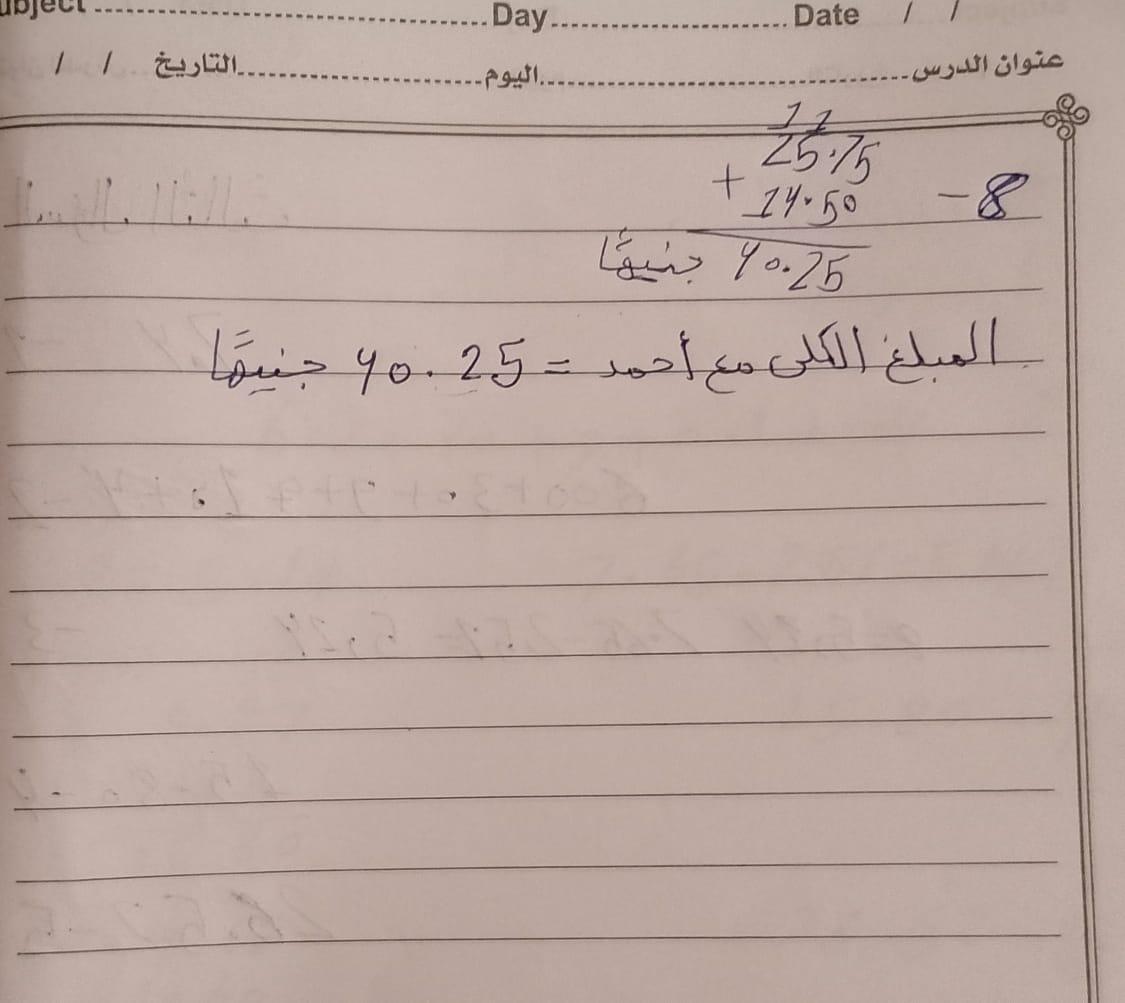 ubject Day Date / /
عنوان الدرس اليوم التاريخ / /
1 1
25.75
8 - + 14.50
40.25 جنيهًا
المبلغ الكلى مع أحمد = 40.25 جنيهًا